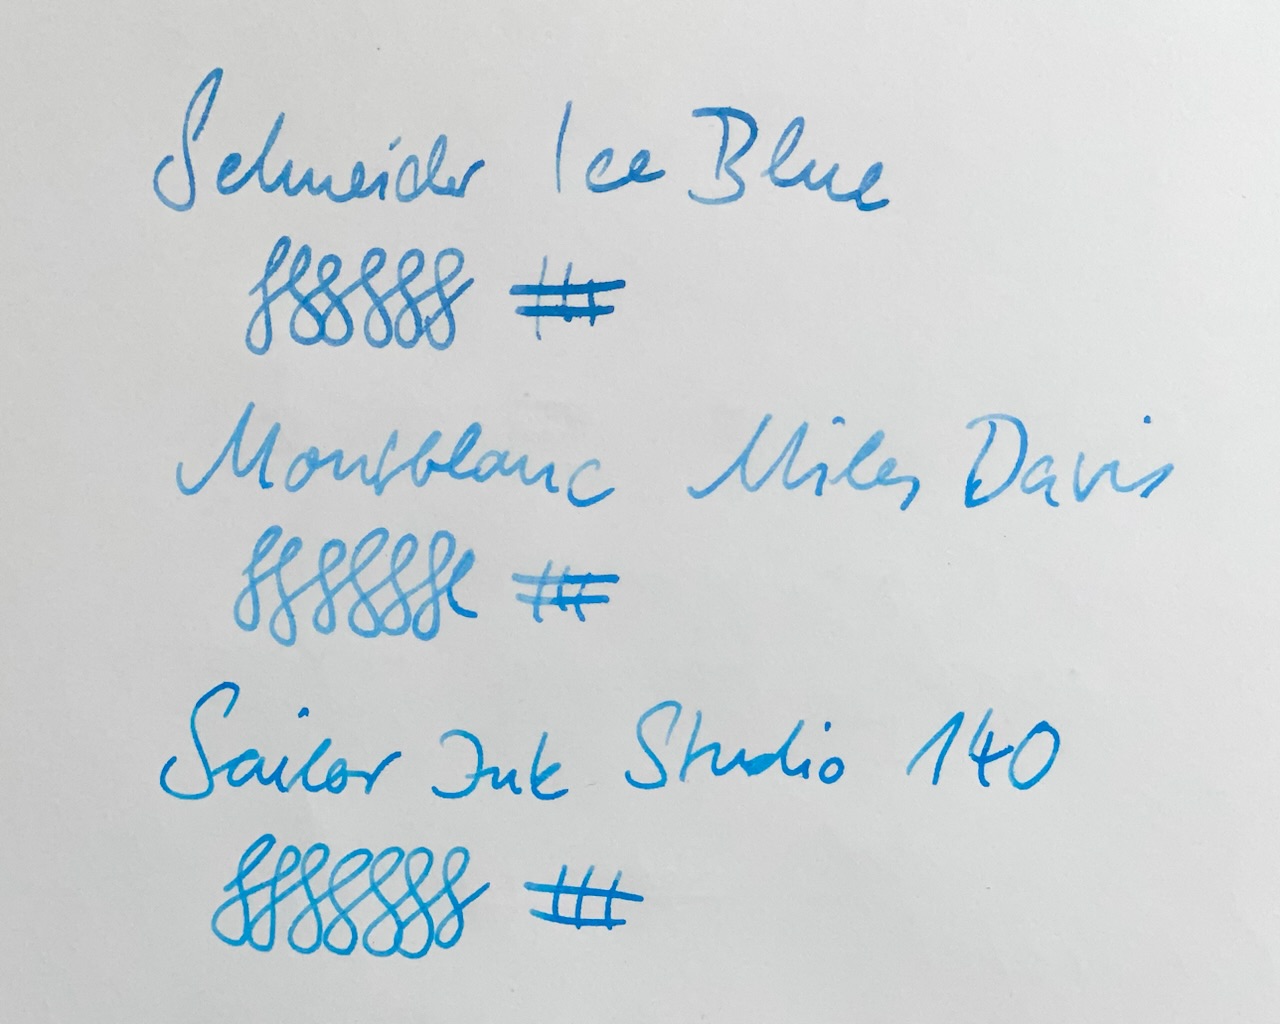 Schneider Ice Blue
Montblanc Miles Davis
Sailor Ink Studio 140